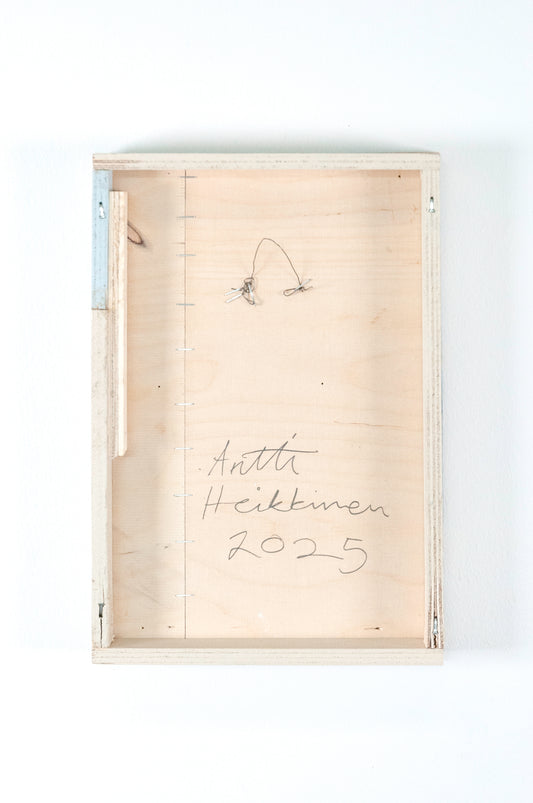 Antti
Heikkinen
2025